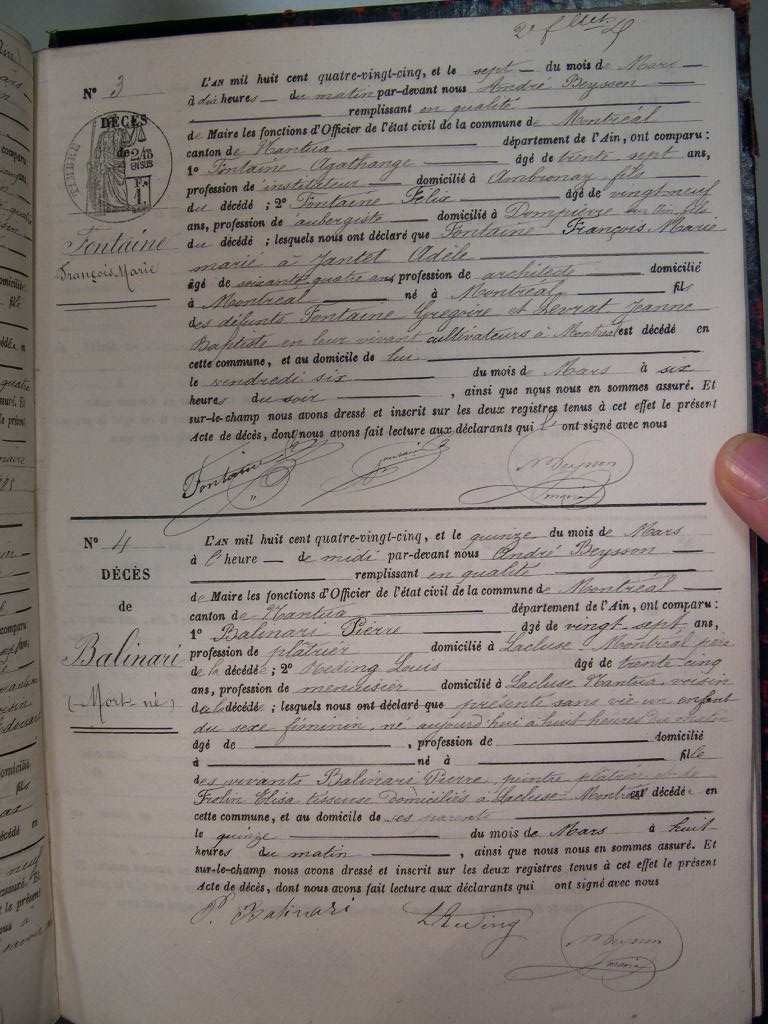 2e f
Nº 3
DÉCÈS
TIMBRE
de 2/10
Fr 1.
Fontaine
François Marie
L'AN mil huit cent quatre-vingt-cinq, et le sept du mois de Mars
à dix heures du matin par-devant nous André Beysson
remplissant en qualité
de Maire les fonctions d'Officier de l'état civil de la commune de Montréal
canton de Nantua département de l'Ain, ont comparu :
1º Fontaine Agathange âgé de trente sept ans,
profession de instituteur domicilié à Ambronay fils
du décédé ; 2º Fontaine Félix âgé de vingt neuf
ans, profession de aubergiste domicilié à Dompierre fils
du décédé ; lesquels nous ont déclaré que Fontaine François Marie
marié à Jantet Adèle
âgé de soixante quatre ans profession de architecte domicilié
à Montréal né à Montréal fils
des défunts Fontaine Grégoire et Levrat Jeanne
Baptiste en leur vivant cultivateurs à Montréal est décédé en
cette commune, et au domicile de lui
le vendredi six du mois de Mars à six
heures du soir , ainsi que nous nous en sommes assuré. Et
sur-le-champ nous avons dressé et inscrit sur les deux registres tenus à cet effet le présent
Acte de décès, dont nous avons fait lecture aux déclarants qui l' ont signé avec nous
Fontaine
Nº 4
DÉCÈS
de
Balinari
(Mort-né)
L'AN mil huit cent quatre-vingt-cinq, et le quinze du mois de Mars
à l'heure de midi par-devant nous André Beysson
remplissant en qualité
de Maire les fonctions d'Officier de l'état civil de la commune de Montréal
canton de Nantua département de l'Ain, ont comparu :
1º Balinari Pierre âgé de vingt sept ans,
profession de plâtrier domicilié à Lacluse Montréal père
de la décédée ; 2º Heding Louis âgé de trente cinq
ans, profession de menuisier domicilié à Lacluse Nantua voisin
de la décédée ; lesquels nous ont déclaré que présente sans vie un enfant
du sexe féminin, né aujourd'hui à huit heures du matin
âgé de , profession de domicilié
à né à fille
des vivants Balinari Pierre, peintre plâtrier et de
Frolin Elisa tisseuse domiciliés à Lacluse Montréal est décédée en
cette commune, et au domicile de ses parents
le quinze du mois de Mars à huit
heures du matin , ainsi que nous nous en sommes assuré. Et
sur-le-champ nous avons dressé et inscrit sur les deux registres tenus à cet effet le présent
Acte de décès, dont nous avons fait lecture aux déclarants qui ont signé avec nous
P. Balinari